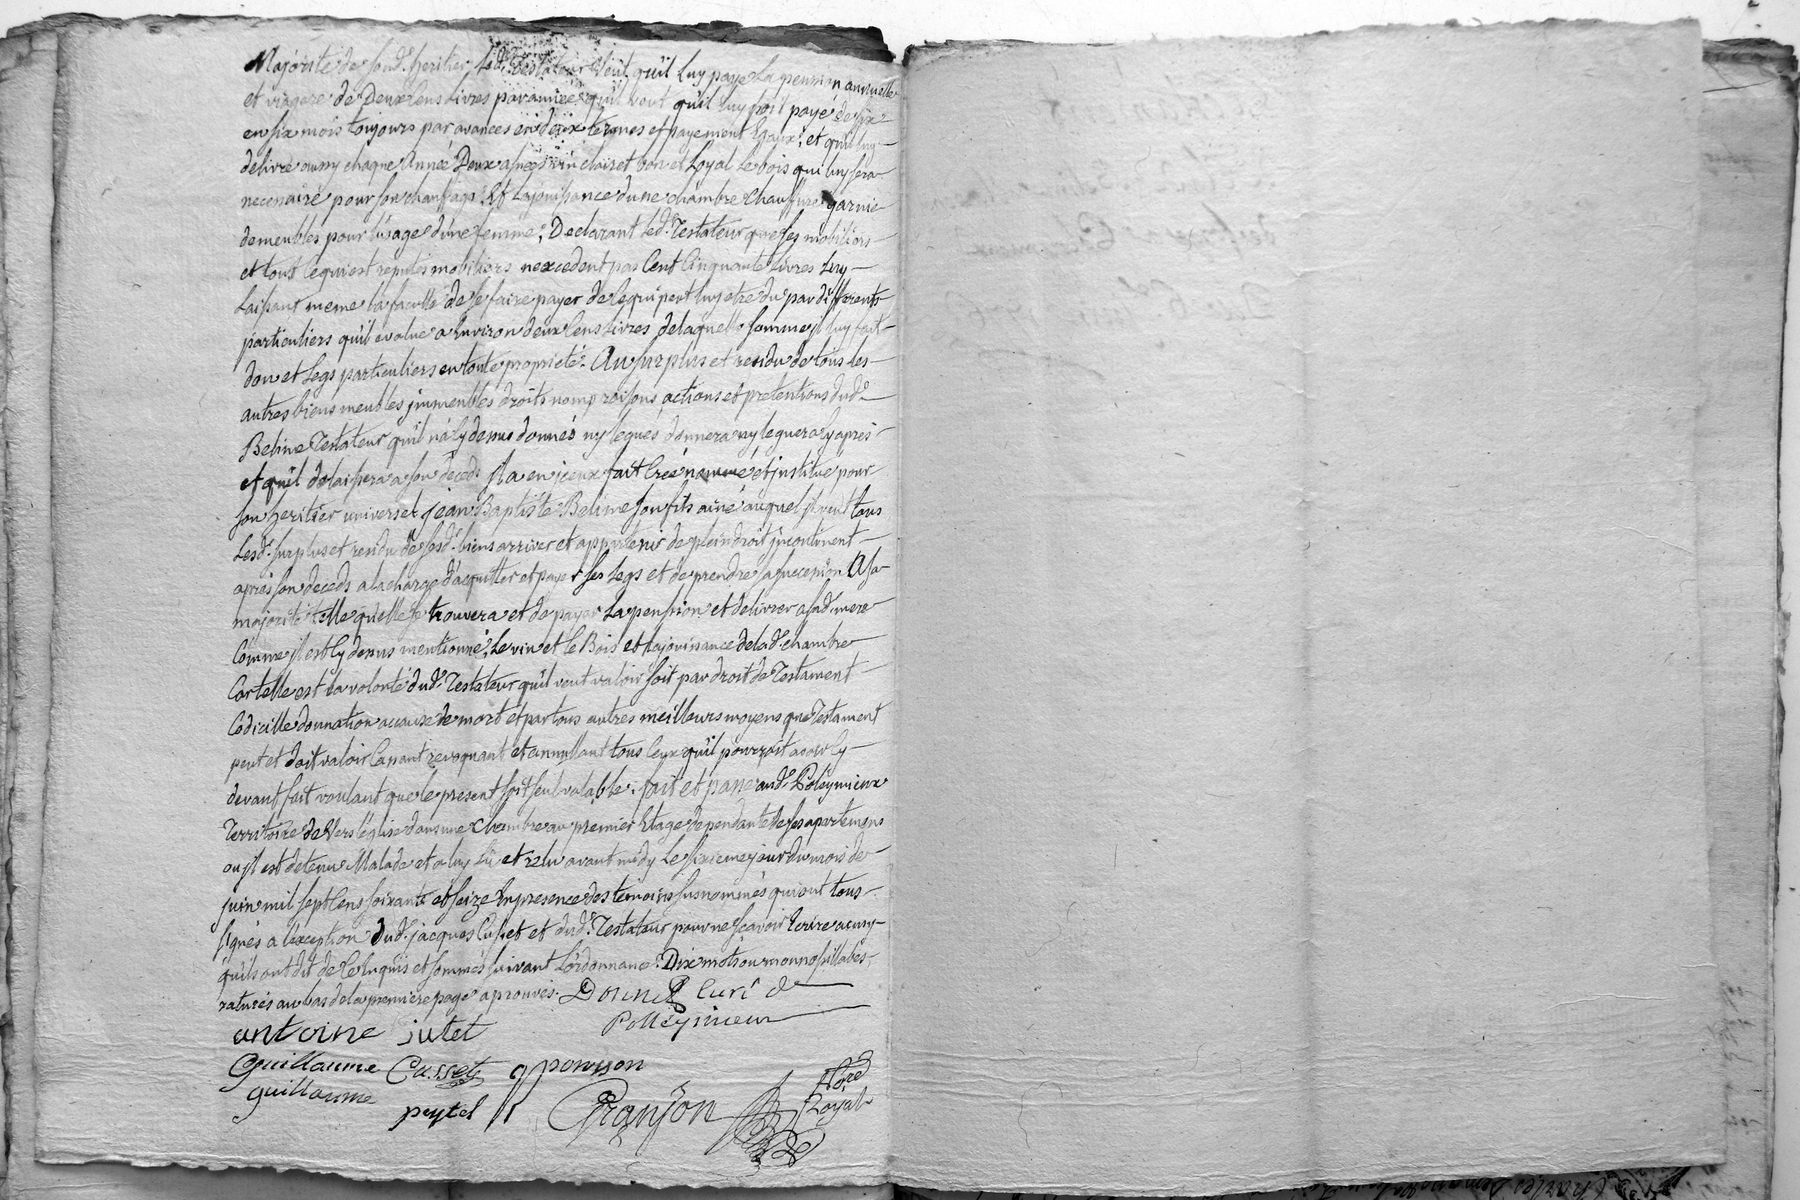 Majorité de sond. heritier Led. Testateur veut qu'il luy paye La pension annuelle
et viagere de Deux Cens Livres par année qu'il veut qu'il luy soit payé de six
en six mois toujours par avances en deux termes et payement Egaux, et qu'il luy
delivre aussy chaque Année Deux asnées vin clairet bon et Loyal Le bois qui luy sera
necenaire pour son chauffage Et Lajouissance dune chambre garnie
demeubles pour l'usage d'une femme, Declarant Led. Testateur que ses mobiliers
et tout lequi est reputés mobiliers nexcedent pas Cent Cinquante Livres Luy
Laissant meme la faculté de se faire payer de lequi peut luy etre du par differents
particuliers qu'il evalue a Environ deux Cens Livres delaquelle somme il luy fait
don et Legs particuliers en toute proprieté. Au surplus et residu de tous les
autres biens meubles immeubles droits noms raisons, actions et pretentions dud.
Beline Testateur qu'il n'a Cy denus donnés ny legués donnera ny leguera Cy après
et qu'il delaissera a son deceds Il a en iceux fait Créé nommé et institue pour
son heritier universel Jean Baptiste Beline son fils ainé auquel il veut tous
Lesd. surplus et residu de sesd. biens arriver et appartenir de plein droit incontinent
après son deceds a la charge d'acquitter et payer ses Legs et de prendre sa succession A sa
majorité telle quelle se trouvera et de payer La pension et delivrer a sad. mere
Comme il est Cy denus mentionné, Le vin et le Bois et Lajouissance de lad. chambre
Car telle est la volonté dud. Testateur qu'il veut valoir soit par droit de Testament
Codicille donnation a cause de mort et par tous autres meilleurs moyens que Testament
peut et doit valoir Canant revoquant et annullant tous Ceux qu'il pourroit avoir Cy
devant fait voulant que le present soit seul valable. fait et panné aud. Poleymieux
Territoire de Vers l'église dans une chambre au premier Etage dependante de ses apartemens
ou Il est detenu Malade et a luy Lû et relu avant midy Le sixieme jour du mois de
juin mil sept Cens soixante et seize En presence des temoins susnommés qui ont tous
signés a l'exception dud. jacques Cusset et dud. Testateur pour ne scavoir Ecrire a cuny
qu'ils ont dit de Ce Enquis et sommés suivant L'ordonnance. Dix mots ou monnosillabes
raturés au bas de la premiere page aprouvés. Donnet curé de
Polleymieux
antoine jutet
Guillaume Cusset ponson
guillaume peytel
Granjon Nore Royal